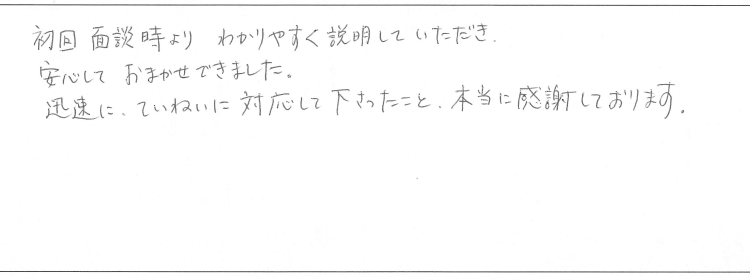 初回 面談時より わかりやすく説明していただき、
安心して おまかせできました。
迅速に、ていねいに対応して下さったこと、本当に感謝しております。